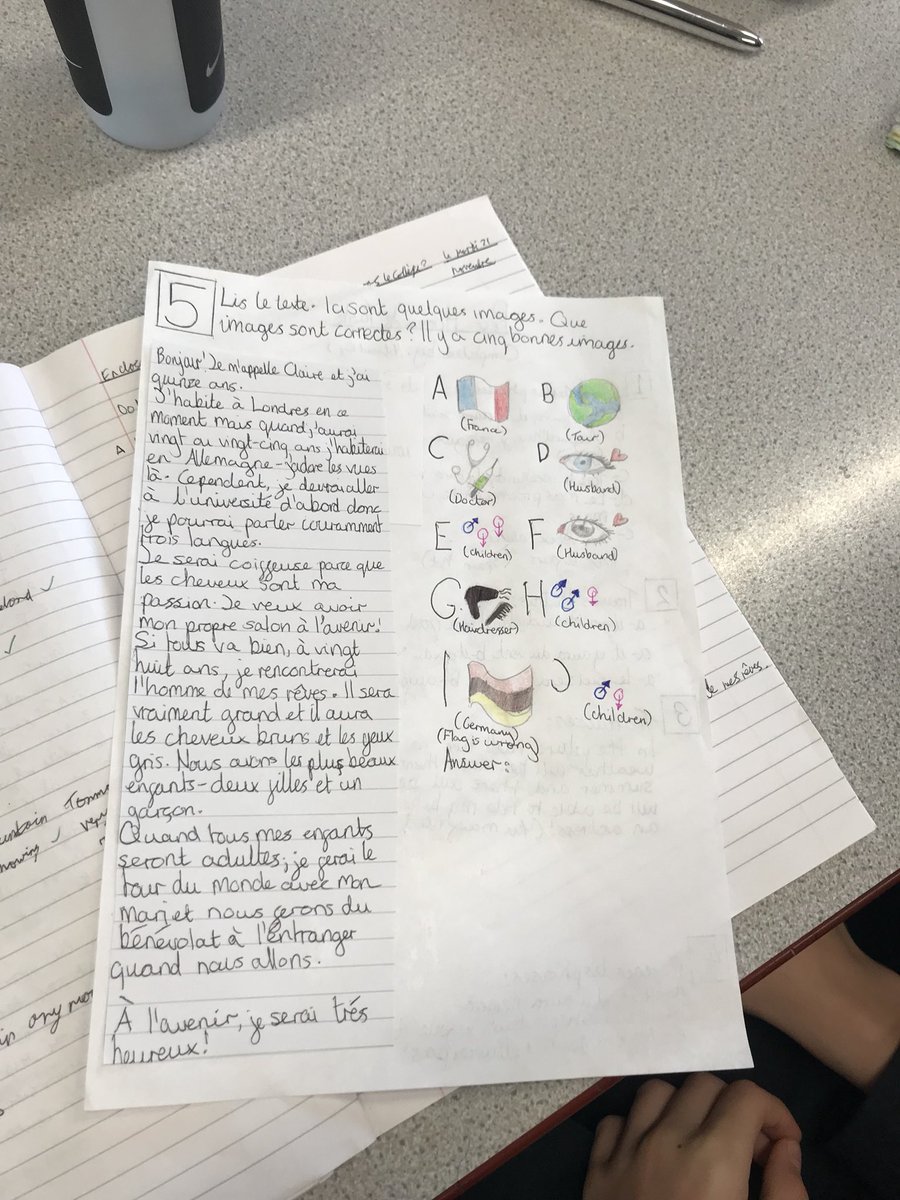 5
Lis le texte. Ici sont quelques images. Que
images sont correctes? Il y a cinq bonnes images.
Bonjour! Je m'appelle Claire et j'ai
quinze ans.
J'habite à Londres en ce
moment mais quand j'aurai
vingt ou vingt-cinq ans j'habiterai
en Allemagne - j'adore les vues
là. Cependant, je devrai aller
à l'université d'abord donc
je pourrai parler couramment
trois langues.
Je serai coiffeuse parce que
les cheveux sont ma
passion. Je veux avoir
mon propre salon à l'avenir!
Si tous va bien, à vingt
huit ans, je rencontrerai
l'homme de mes rêves. Il sera
vraiment grand et il aura
les cheveux bruns et les yeux
gris. Nous aurons les plus beaux
enfants - deux filles et un
garçon.
Quand tous mes enfants
seront adultes, je ferai le
tour du monde avec mon
mari et nous ferons du
bénévolat à l'entranger
quand nous allons.
À l'avenir, je serai trés
heureux!
A
(France)
B
(Tour)
C
(Doctor)
D
(Husband)
E
(children)
F
(Husband)
G.
(Hairdresser)
H
(children)
I
(Germany)
(Flag is wrong)
J
(children)
Answer:
le collège?
novembre
de mes rêves.